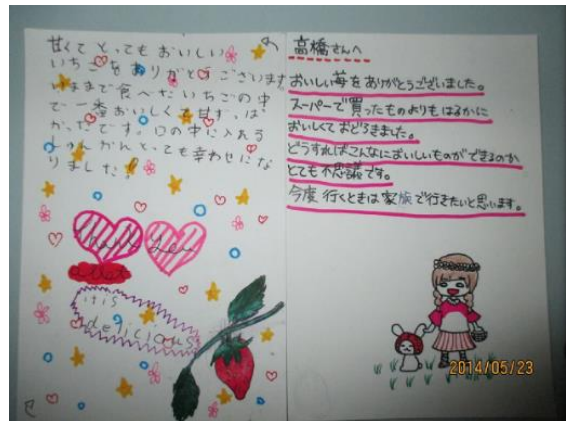 甘くてとってもおいしい
いちごをありがとうございます
いままで食べたいちごの中
で一番おいしくて甘ずっぱ
かったです。口の中に入れる
しゅんかんとても幸わせにな
りました!
Thank you
a lot
it is
delicious
高橋さんへ
おいしい苺をありがとうございました。
スーパーで買ったものよりもはるかに
おいしくておどろきました。
どうすればこんなにおいしいものができるのか
とても不思議です。
今度行くときは家族で行きたいと思います。
2014/05/23